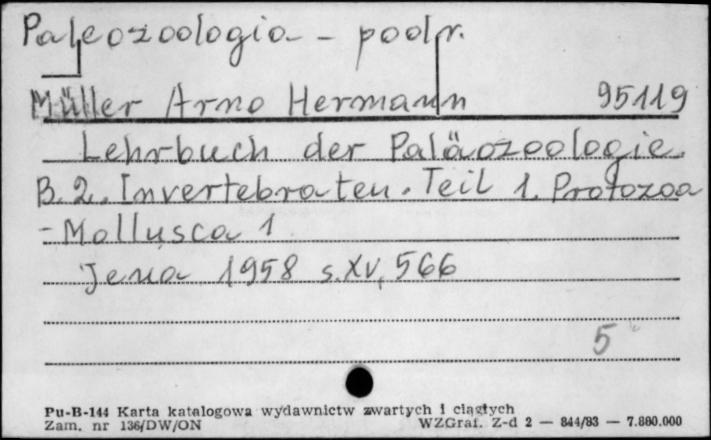 Paleozoologia - podr.
Müller Arno Hermann 95119
Lehrbuch der Paläozoologie.
B. 2. Invertebraten. Teil 1. Protozoa
- Mollusca 1
Jena 1958 s. XV, 566
5
Pu-B-144 Karta katalogowa wydawnictw zwartych i ciągłych
Zam. nr 136/DW/ON WZGraf. Z-d 2 — 844/83 — 7.880.000